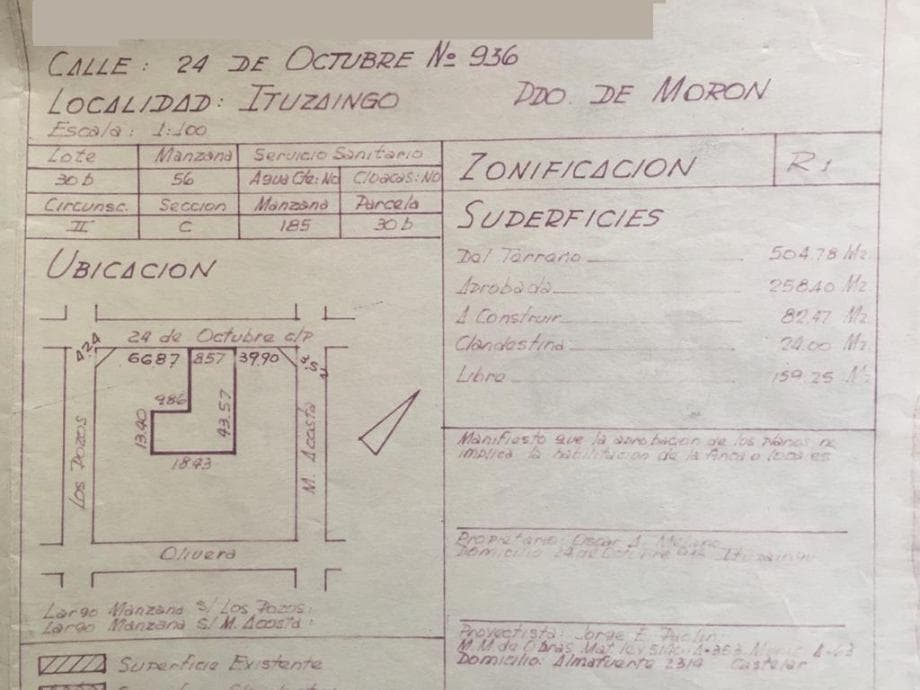 CALLE: 24 DE OCTUBRE Nº 936
LOCALIDAD: ITUZAINGO PDO. DE MORON
Escala: 1:100
Lote Manzana Servicio Sanitario
30b 56 Agua Cte: No Cloacas: No
Circunsc. Seccion Manzana Parcela
II C 185 30b
UBICACION
24 de Octubre c/P
424
6687 857 3990
986
13.40
43.57
1843
Los Pozos
M. Acosta
Olivera
Largo Manzana s/ Los Pozos:
Largo Manzana s/ M. Acosta:
Superficie Existente
ZONIFICACION R1
SUPERFICIES
Del Terreno 504.78 M2
Aprobada 258.40 M2
A Construir 82.47 M2
Clandestina 24.00 M2
Libre 159.25 M2
Manifiesto que la aprobacion de los planos no
implica la habilitacion de la finca o locales
Propietario: Oscar A.
Domicilio 24 de Octubre Ituzaingo
Proyectista: Jorge E.
M.M. de Obras Mat. ley
Domicilio: Almafuerte 2314 Castelar